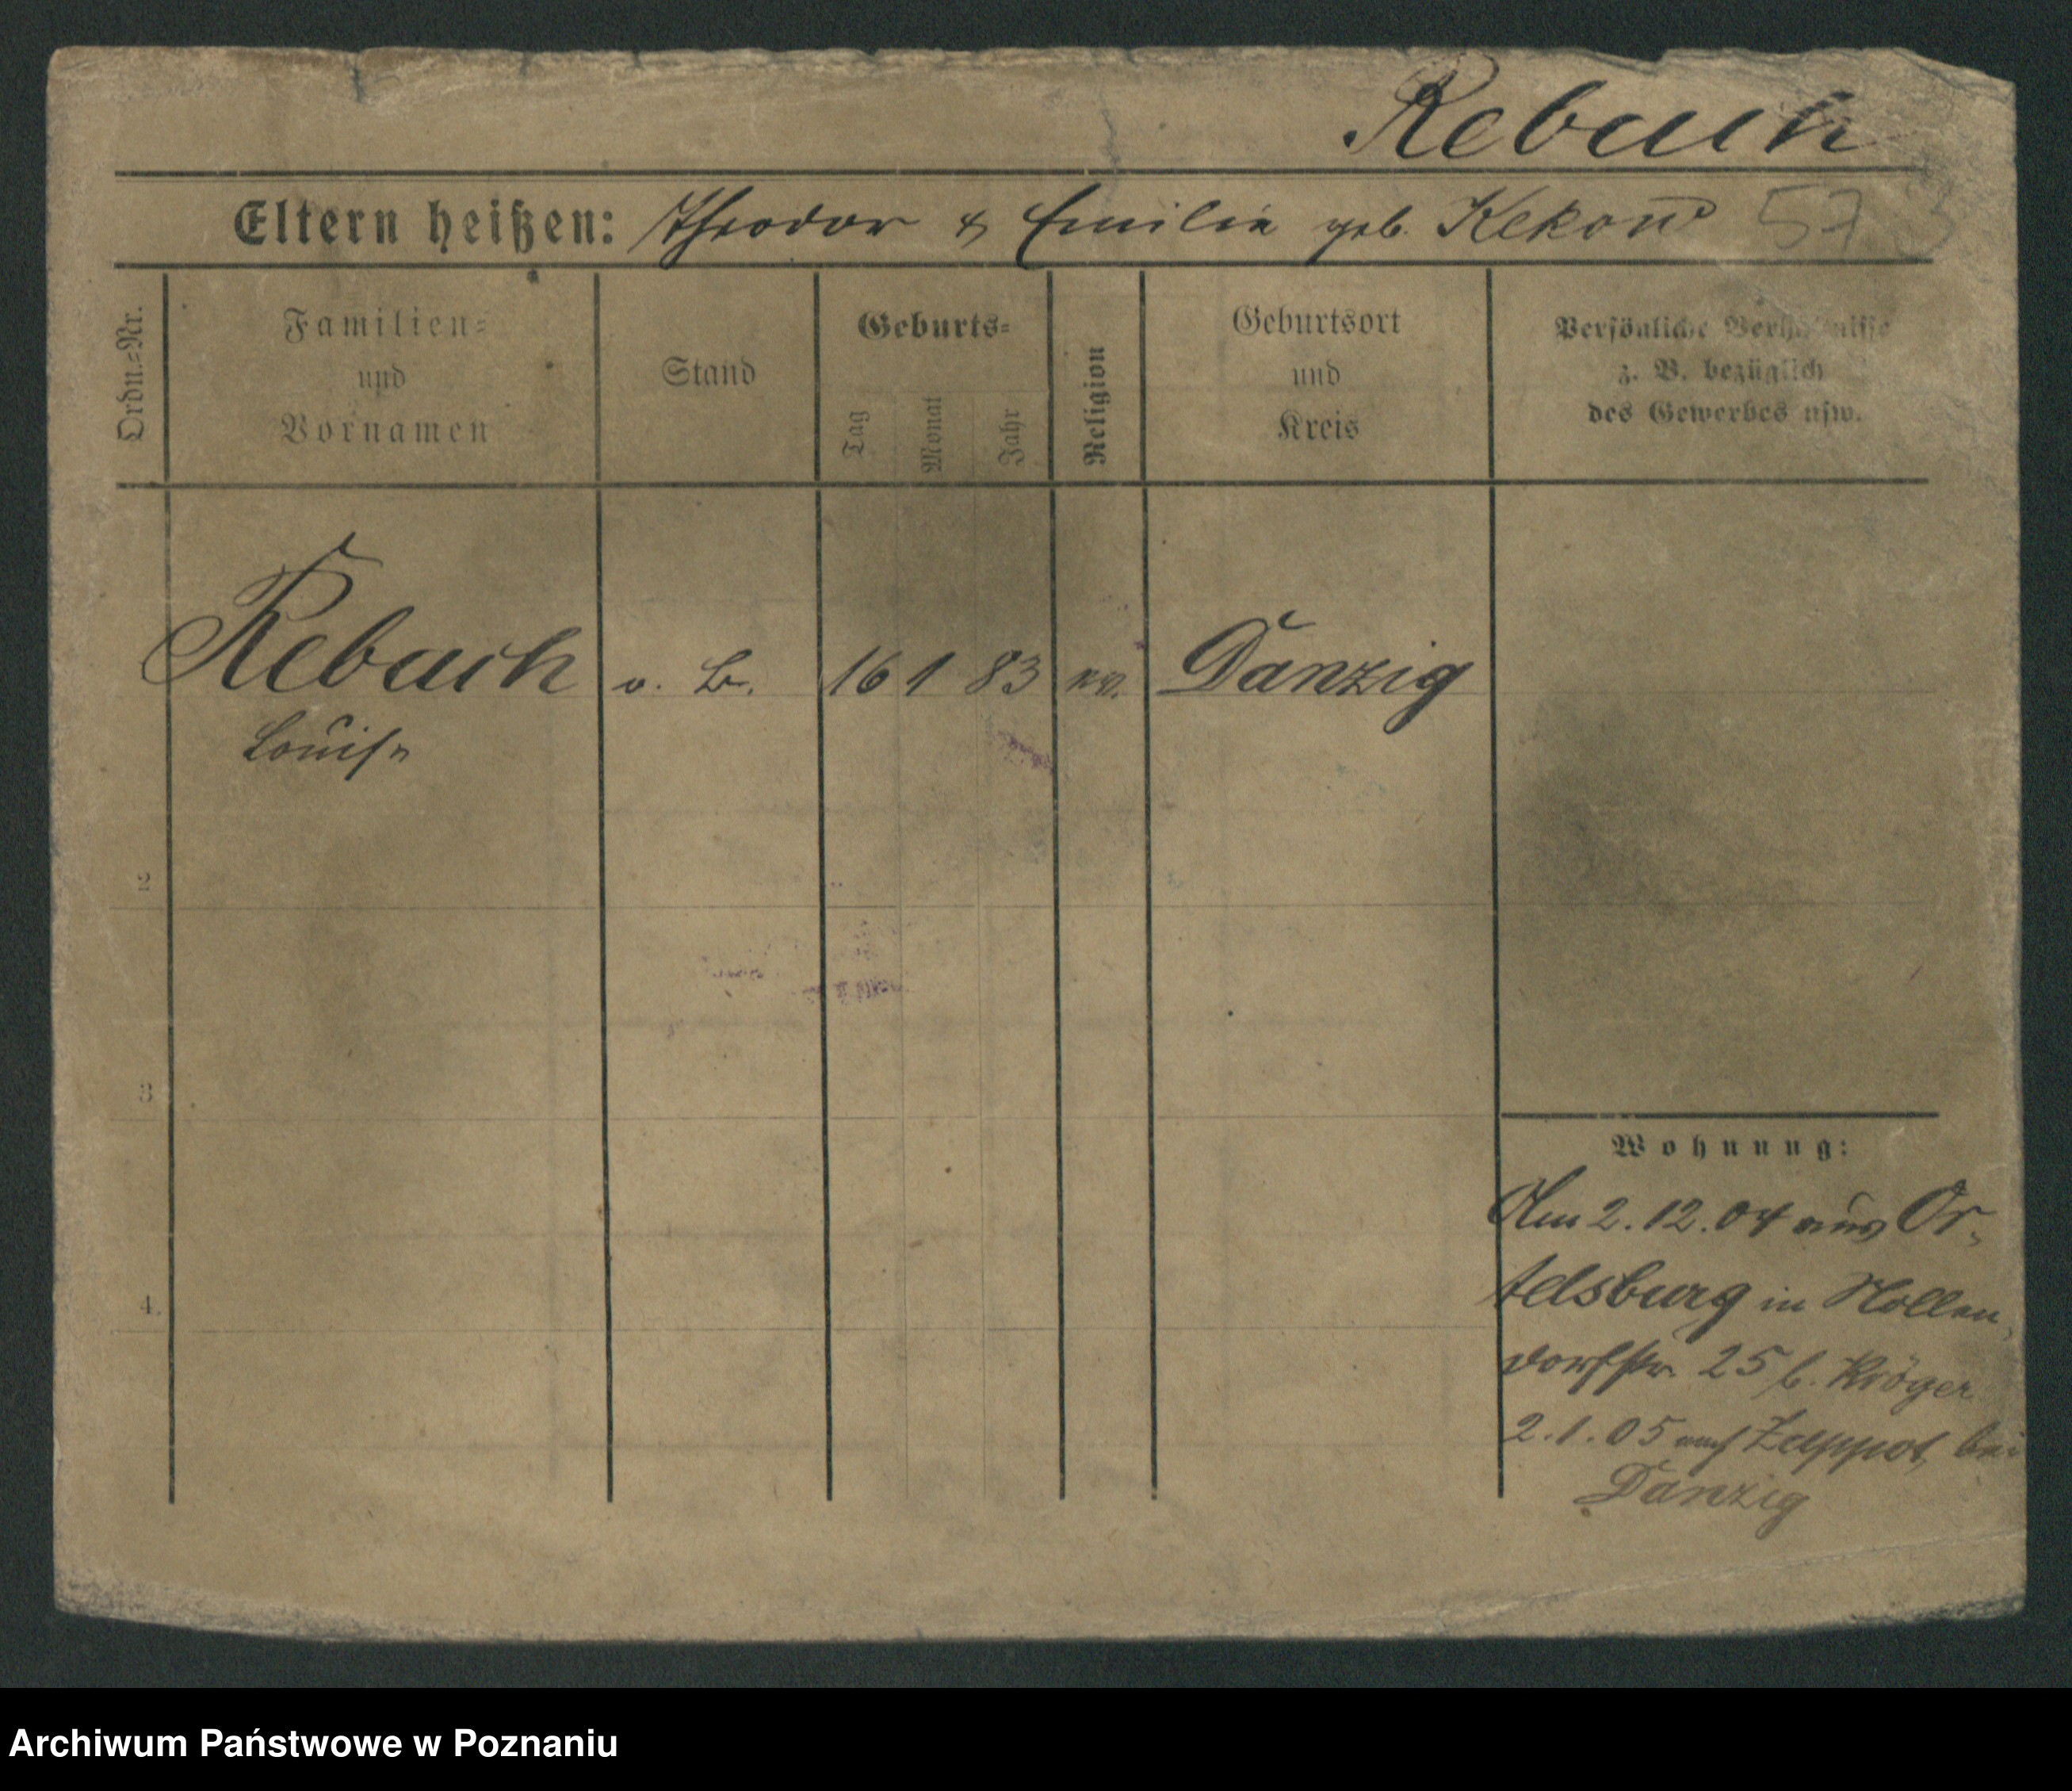 Rebach
Eltern heißen: Theodor & Emilie geb. Kekow
57
Ordn.=Nr.
Familien=
und
Vornamen
Stand
Geburts=
Tag
Monat
Jahr
Religion
Geburtsort
und
Kreis
Persönliche Verhältnisse
z. B. bezüglich
des Gewerbes usw.
Rebach o. B. 16 1 83 ev. Danzig
Louise
2
3
4.
Wohnung:
Am 2.12.04 aus Or-
telsburg in Nollen,
dorfstr. 25 b. Kröger
2.1.05 nach Zoppot bei
Danzig
Archiwum Państwowe w Poznaniu